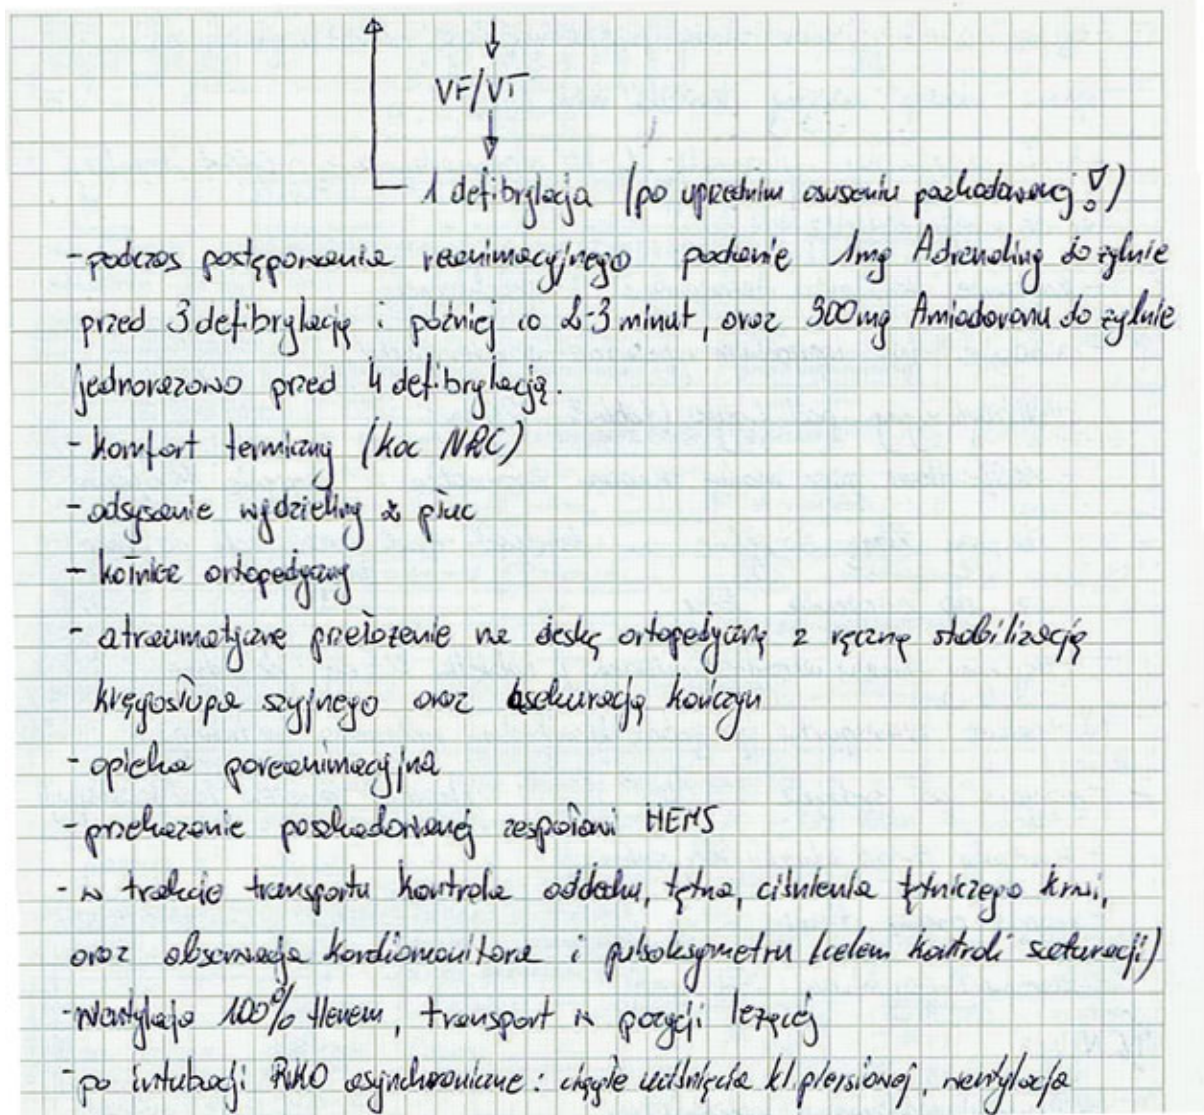 VF/VT
1 defibrylacja (po uprzednim osuszeniu poszkodowanej!)
- podczas postępowania reanimacyjnego podanie 1mg Adrenaliny dożylnie
przed 3 defibrylacją i później co 2-3 minut, oraz 300mg Amiodaronu dożylnie
jednorazowo przed 4 defibrylacją.
- komfort termiczny (koc NRC)
- odsysanie wydzieliny z płuc
- kołnierz ortopedyczny
- atraumatyczne przełożenie na deskę ortopedyczną z ręczną stabilizacją
kręgosłupa szyjnego oraz asekuracją kończyn
- opieka poreanimacyjna
- przekazanie poszkodowanej zespołowi HEMS
- w trakcie transportu kontrola oddechu, tętna, ciśnienia tętniczego krwi,
oraz obserwacja kardiomonitora i pulsoksymetru (celem kontroli saturacji)
- wentylacja 100% tlenem, transport w pozycji leżącej
- po intubacji RKO asynchroniczne: ciągłe uciśnięcia kl. piersiowej, wentylacja